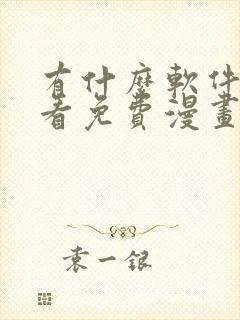 有什麼軟件
看免費漫畫
袁一銀